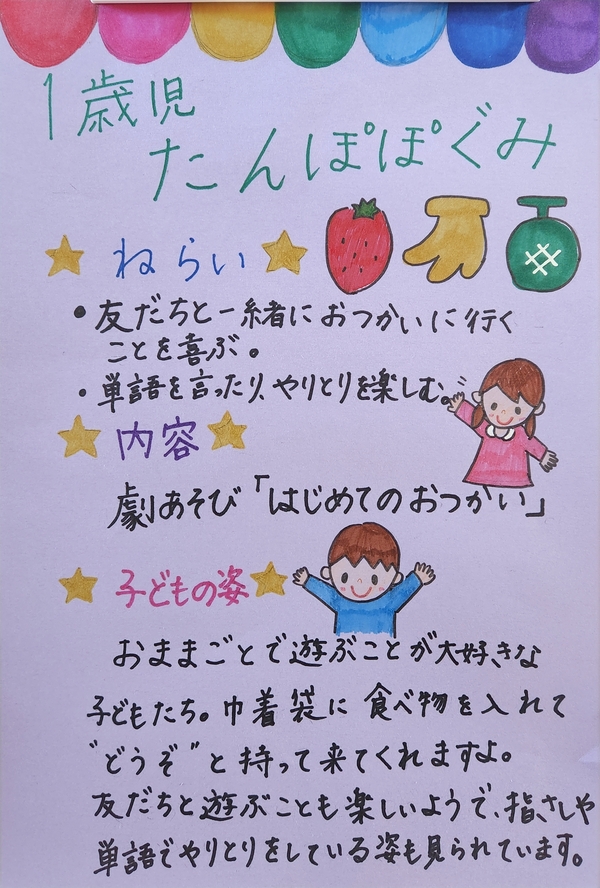 1歳児
たんぽぽぐみ
ねらい
・友だちと一緒におつかいに行く
ことを喜ぶ。
・単語を言ったり、やりとりを楽しむ。
内容
劇あそび「はじめてのおつかい」
子どもの姿
おままごとで遊ぶことが大好きな
子どもたち。巾着袋に食べ物を入れて
"どうぞ"と持って来てくれますよ。
友だちと遊ぶことも楽しいようで、指さしや
単語でやりとりをしている姿も見られています。